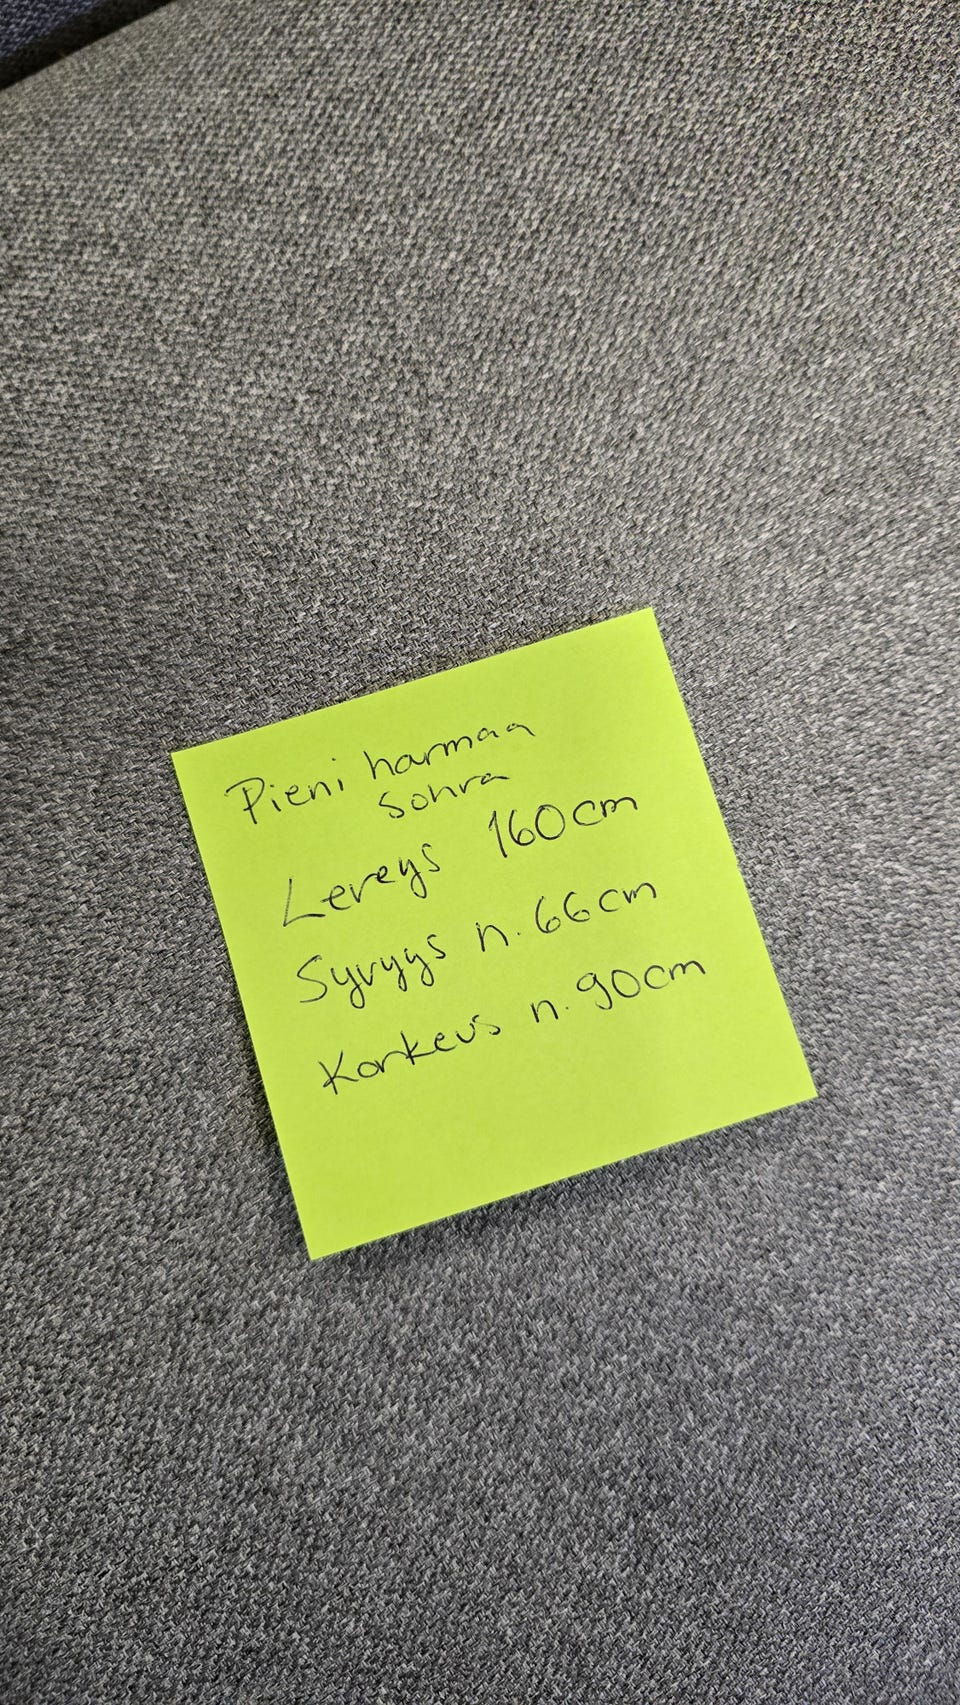 Pieni harmaa
sohva
Leveys 160cm
Syvyys n. 66cm
Korkeus n. 90cm